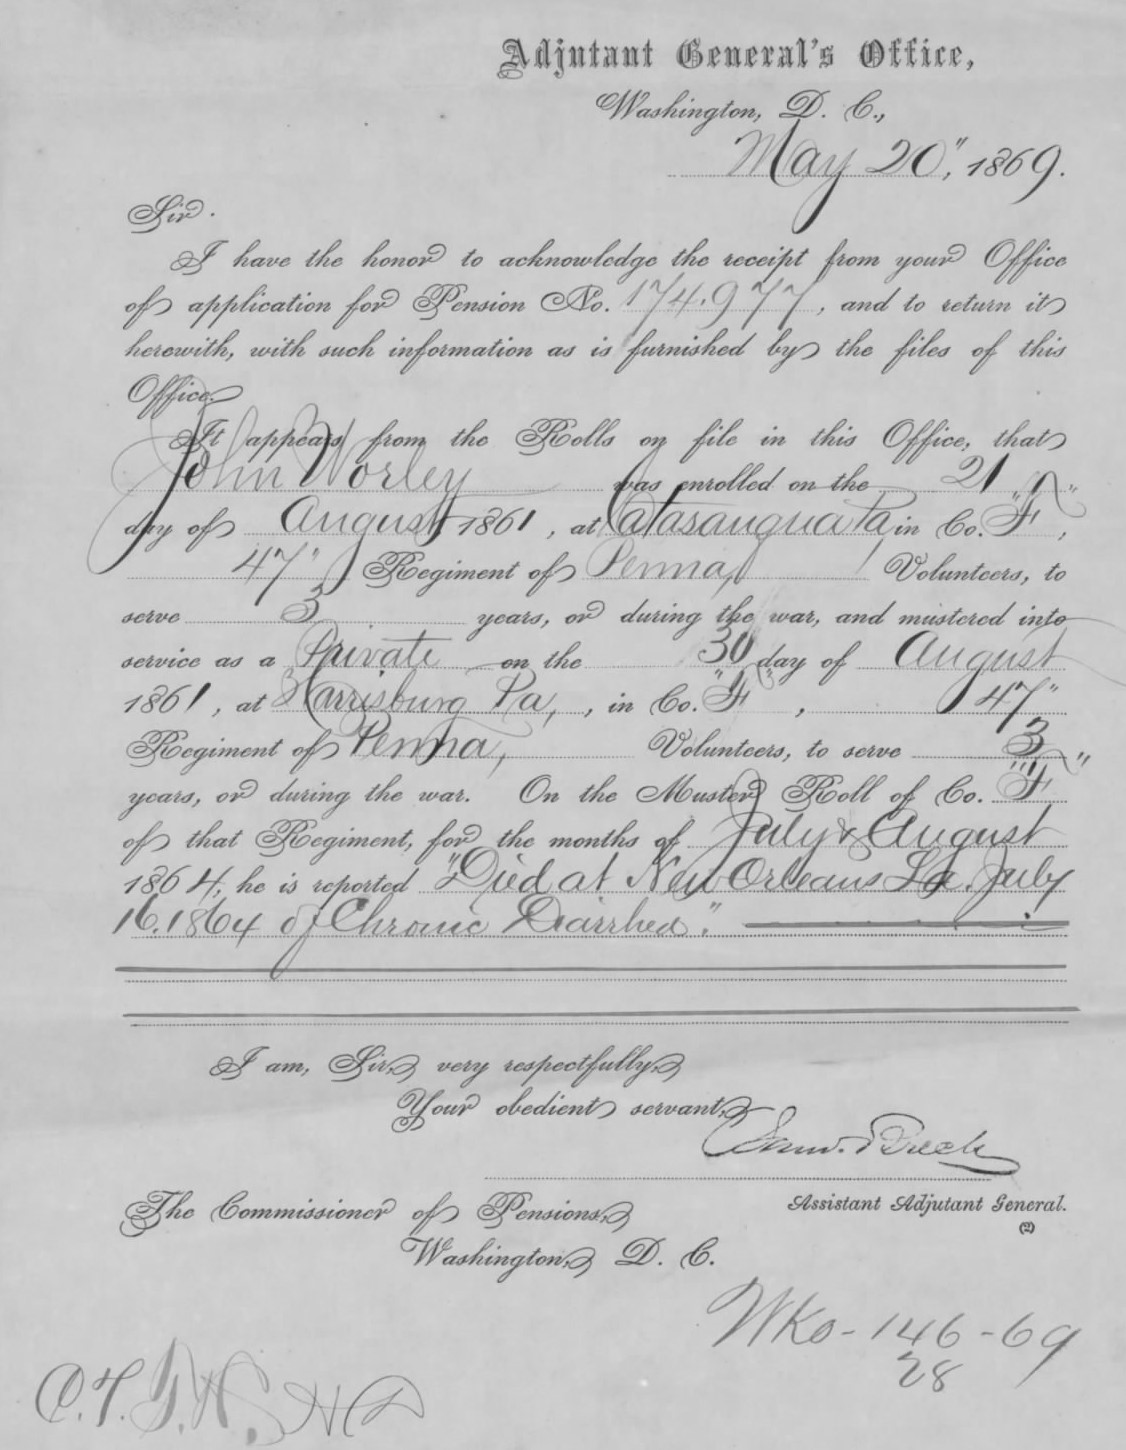 Adjutant General's Office,
Washington, D. C.,
May 20", 1869.
Sir.
I have the honor to acknowledge the receipt from your Office
of application for Pension No. 174.977, and to return it
herewith, with such information as is furnished by the files of this
Office.
It appears from the Rolls on file in this Office, that
John Worley was enrolled on the 21
day of August 1861, at Catasauqua Pa in Co. "F",
47" Regiment of Penna, Volunteers, to
serve 3 years, or during the war, and mustered into
service as a Private on the 30 day of August
1861, at Harrisburg Pa, , in Co. "F", 47"
Regiment of Penna, Volunteers, to serve 3
years, or during the war. On the Muster Roll of Co. "F"
of that Regiment, for the months of July & August
1864, he is reported "Died at New Orleans La. July
16. 1864 of Chronic Diarrhea."
I am, Sir, very respectfully,
Your obedient servant,
Saml. Breck
Assistant Adjutant General.
(2)
The Commissioner of Pensions,
Washington, D. C.
WKo-146-69
28